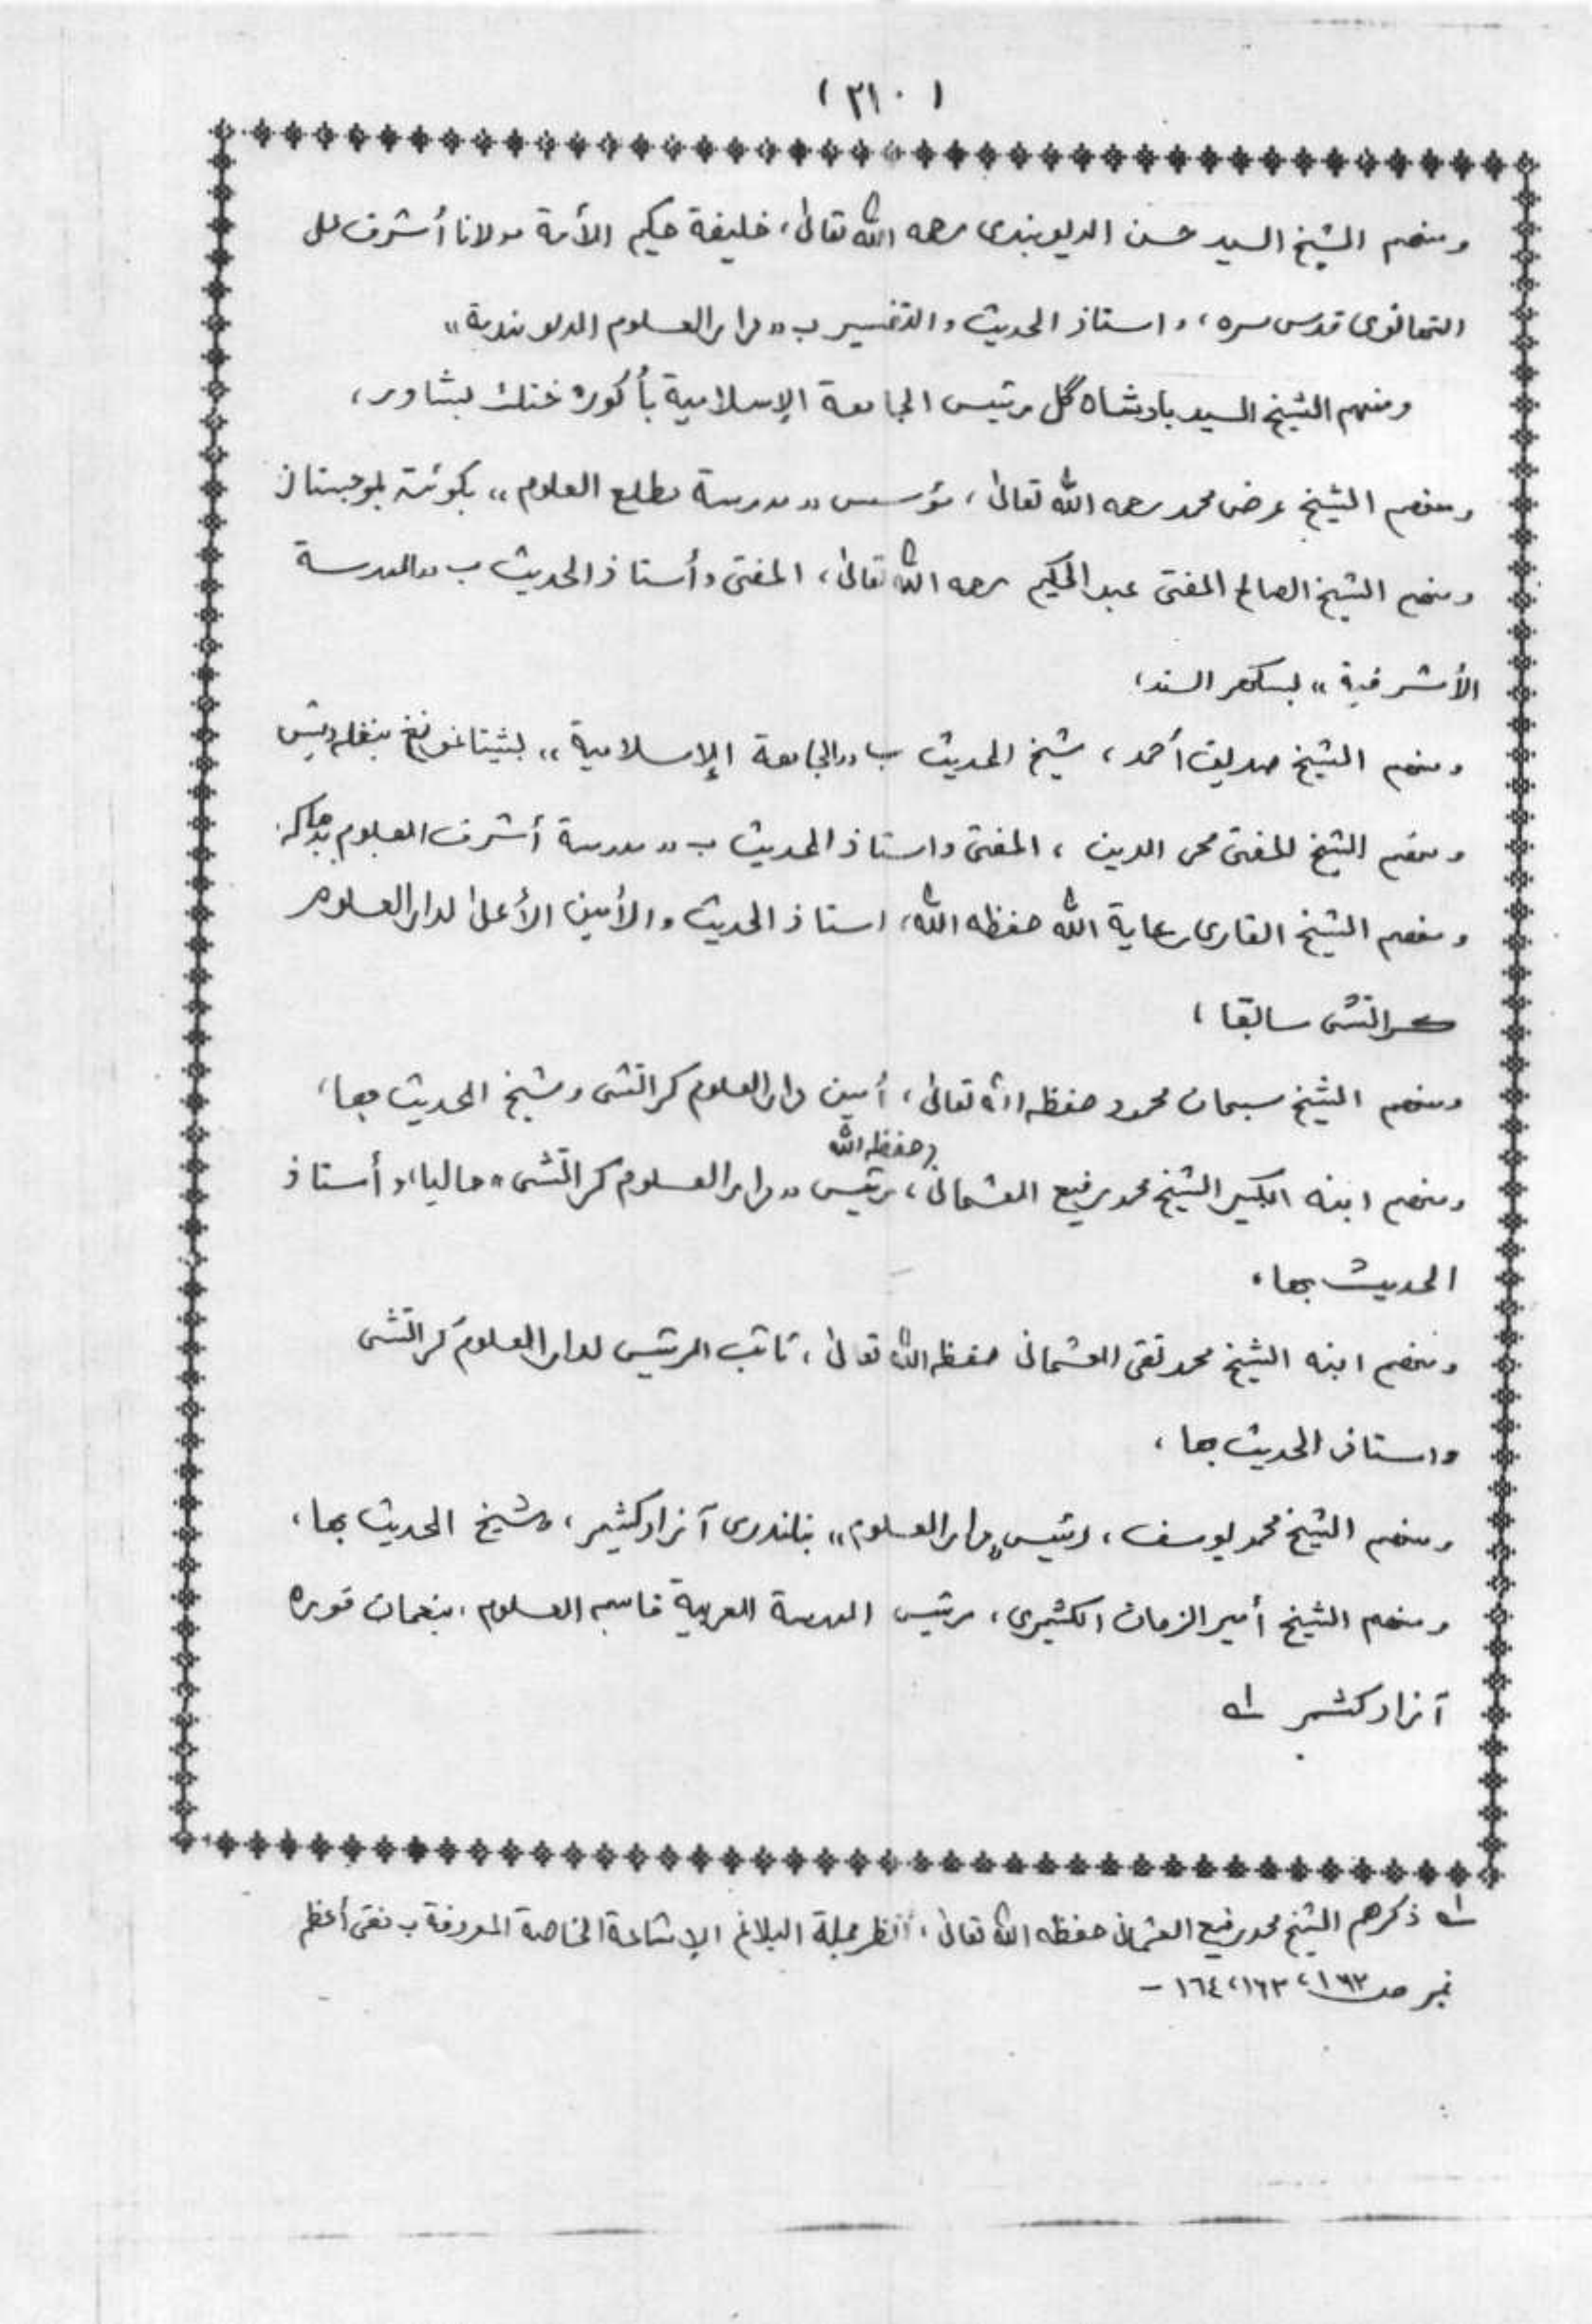 ( ٣١٠ )
ومنهم الشيخ السيد حسن الديوبندى رحمه الله تعالىٰ، خليفة حكيم الأمة مولانا أشرف على
التهانوى قدس سره، واستاذ الحديث والتفسير ب «دار العلوم الديوبندية»
ومنهم الشيخ السيد بادشاه گل رئيس الجامعة الإسلامية بأكوره ختك بشاور،
ومنهم الشيخ عرض محمد رحمه الله تعالىٰ، مؤسس «مدرسة مطلع العلوم» بكوئته بلوجستان
ومنهم الشيخ الصالح المفتى عبد الحكيم رحمه الله تعالىٰ، المفتى وأستاذ الحديث ب «المدرسة
الأشرفية» بسكهر السند،
ومنهم الشيخ صديق أحمد، شيخ الحديث ب «الجامعة الإسلامية» بشيتاغونغ بنغله ديش
ومنهم الشيخ المفتى محى الدين، المفتى واستاذ الحديث ب «مدرسة أشرف العلوم بدهاكه
ومنهم الشيخ القارى رعاية الله حفظه الله، استاذ الحديث والأمين الأعلىٰ لدار العلوم
كراتشى سابقا،
ومنهم الشيخ سبحان محمود حفظه الله تعالىٰ، أمين دار العلوم كراتشى وشيخ الحديث بها،
ومنهم ابنه الكبير الشيخ محمد رفيع العثمانى (حفظه الله، رئيس «دار العلوم كراتشى» حاليا، وأستاذ
الحديث بها.
ومنهم ابنه الشيخ محمد تقى العثمانى حفظه الله تعالىٰ، نائب الرئيس لدار العلوم كراتشى
واستاذ الحديث بها،
ومنهم الشيخ محمد يوسف، رئيس «دار العلوم» بلندرى آزاد كشمير، وشيخ الحديث بها،
ومنهم الشيخ أمير الزمان الكشميرى، رئيس المدرسة العربية قاسم العلوم، بنعمان فوره
آزاد كشمير ١ه
١ه ذكرهم الشيخ محمد رفيع العثمانى حفظه الله تعالىٰ، انظر مجلة البلاغ الإشاعة الخاصة المعروفة ب مفتى أعظم
نمبر ص ١٦٢، ١٦٣، ١٦٤ -